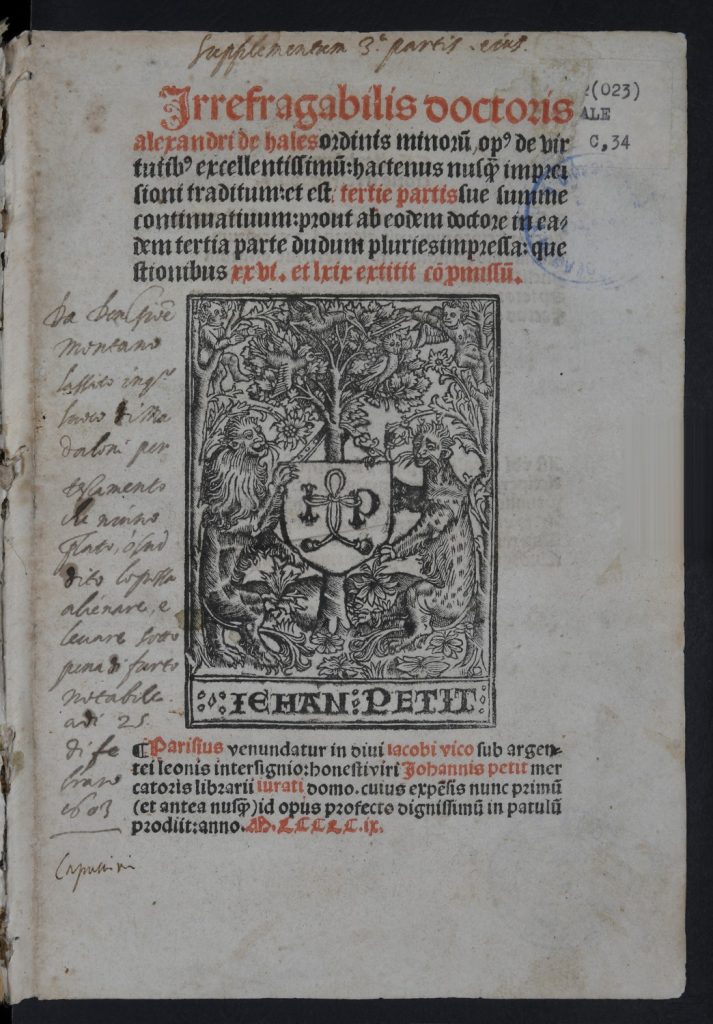 Supplementum 3ᵉ partis eius.
Irrefragabilis doctoris
alexandri de hales ordinis minorū opꝰ de vir
tutibꝰ excellentissimū: hactenus nusꝙ̄ impres
sioni traditum: et est tertie partis sue summe
continuatiuum: prout ab eodem doctore in ea-
dem tertia parte dudum pluries impressa: que
stionibus xxvi. et lxix extitit cō promissū.
(023)
ALE
C,34
montano
per
testamento
che niuno
alienare, e
leuare sotto
pena furto
notabile
adi 25
di fe
braro
1603
I P
IEHAN PETIT
¶ Parisius venundatur in diui iacobi vico sub argen-
tei leonis intersignio: honesti viri Johannis petit mer
catoris librarii iurati domo. cuius expēsis nunc primū
(et antea nusꝙ̄) id opus profecto dignissimū in patulū
prodiit: anno. M.CCCCC.ix.